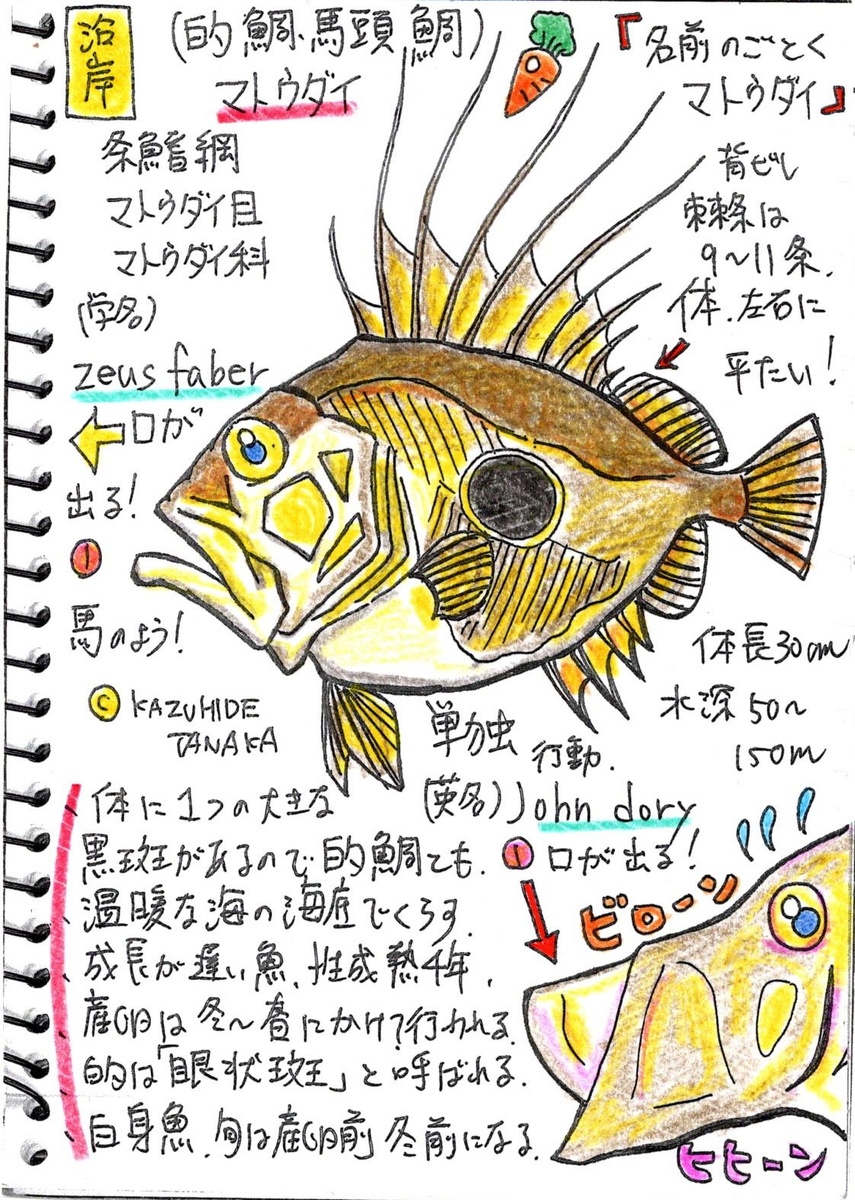 沿岸
(的鯛、馬頭鯛)
マトウダイ
『名前のごとく
マトウダイ』
条鰭綱
マトウダイ目
マトウダイ科
(学名)
zeus faber
背びれ
棘条は
9〜11条.
体、左右に
平たい!
口が
出る!
馬のよう!
© KAZUHIDE
TANAKA
体長30cm
水深50〜
150m
単独
行動.
(英名)John dory
体に1つの大きな
黒斑があるので的鯛とも.
温暖な海の海底でくらす.
成長が遅い魚、性成熟4年.
産卵は冬〜春にかけて行われる.
的は「眼状斑」と呼ばれる.
白身魚、旬は産卵前 冬前になる.
口が出る!
ビローン
ヒヒーン